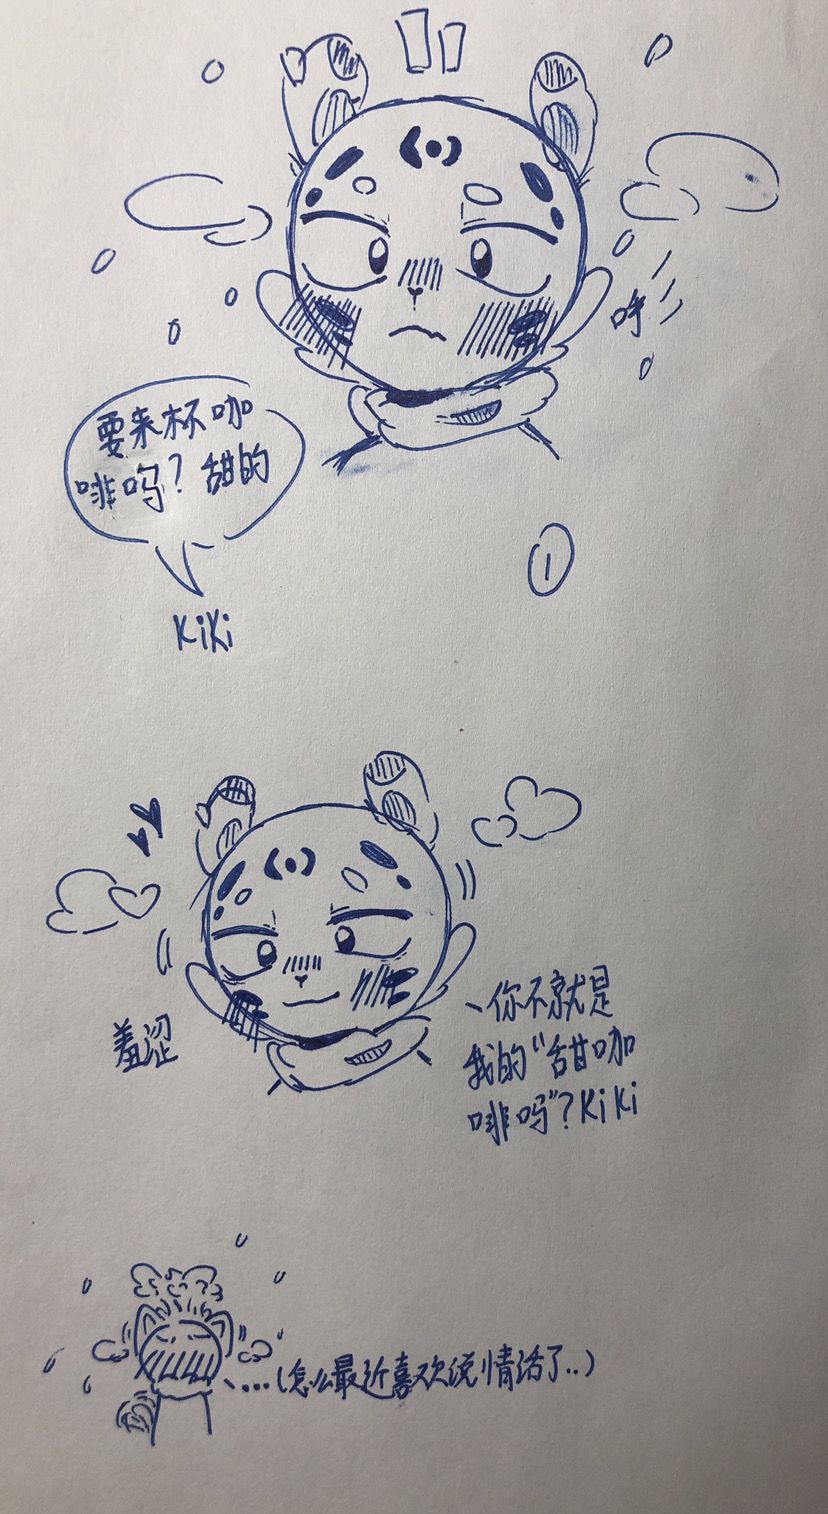 呼
要来杯咖
啡吗？甜的
KiKi
①
羞涩
、你不就是
我的“甜咖
啡吗”？KiKi
、...（怎么最近喜欢说情话了..）